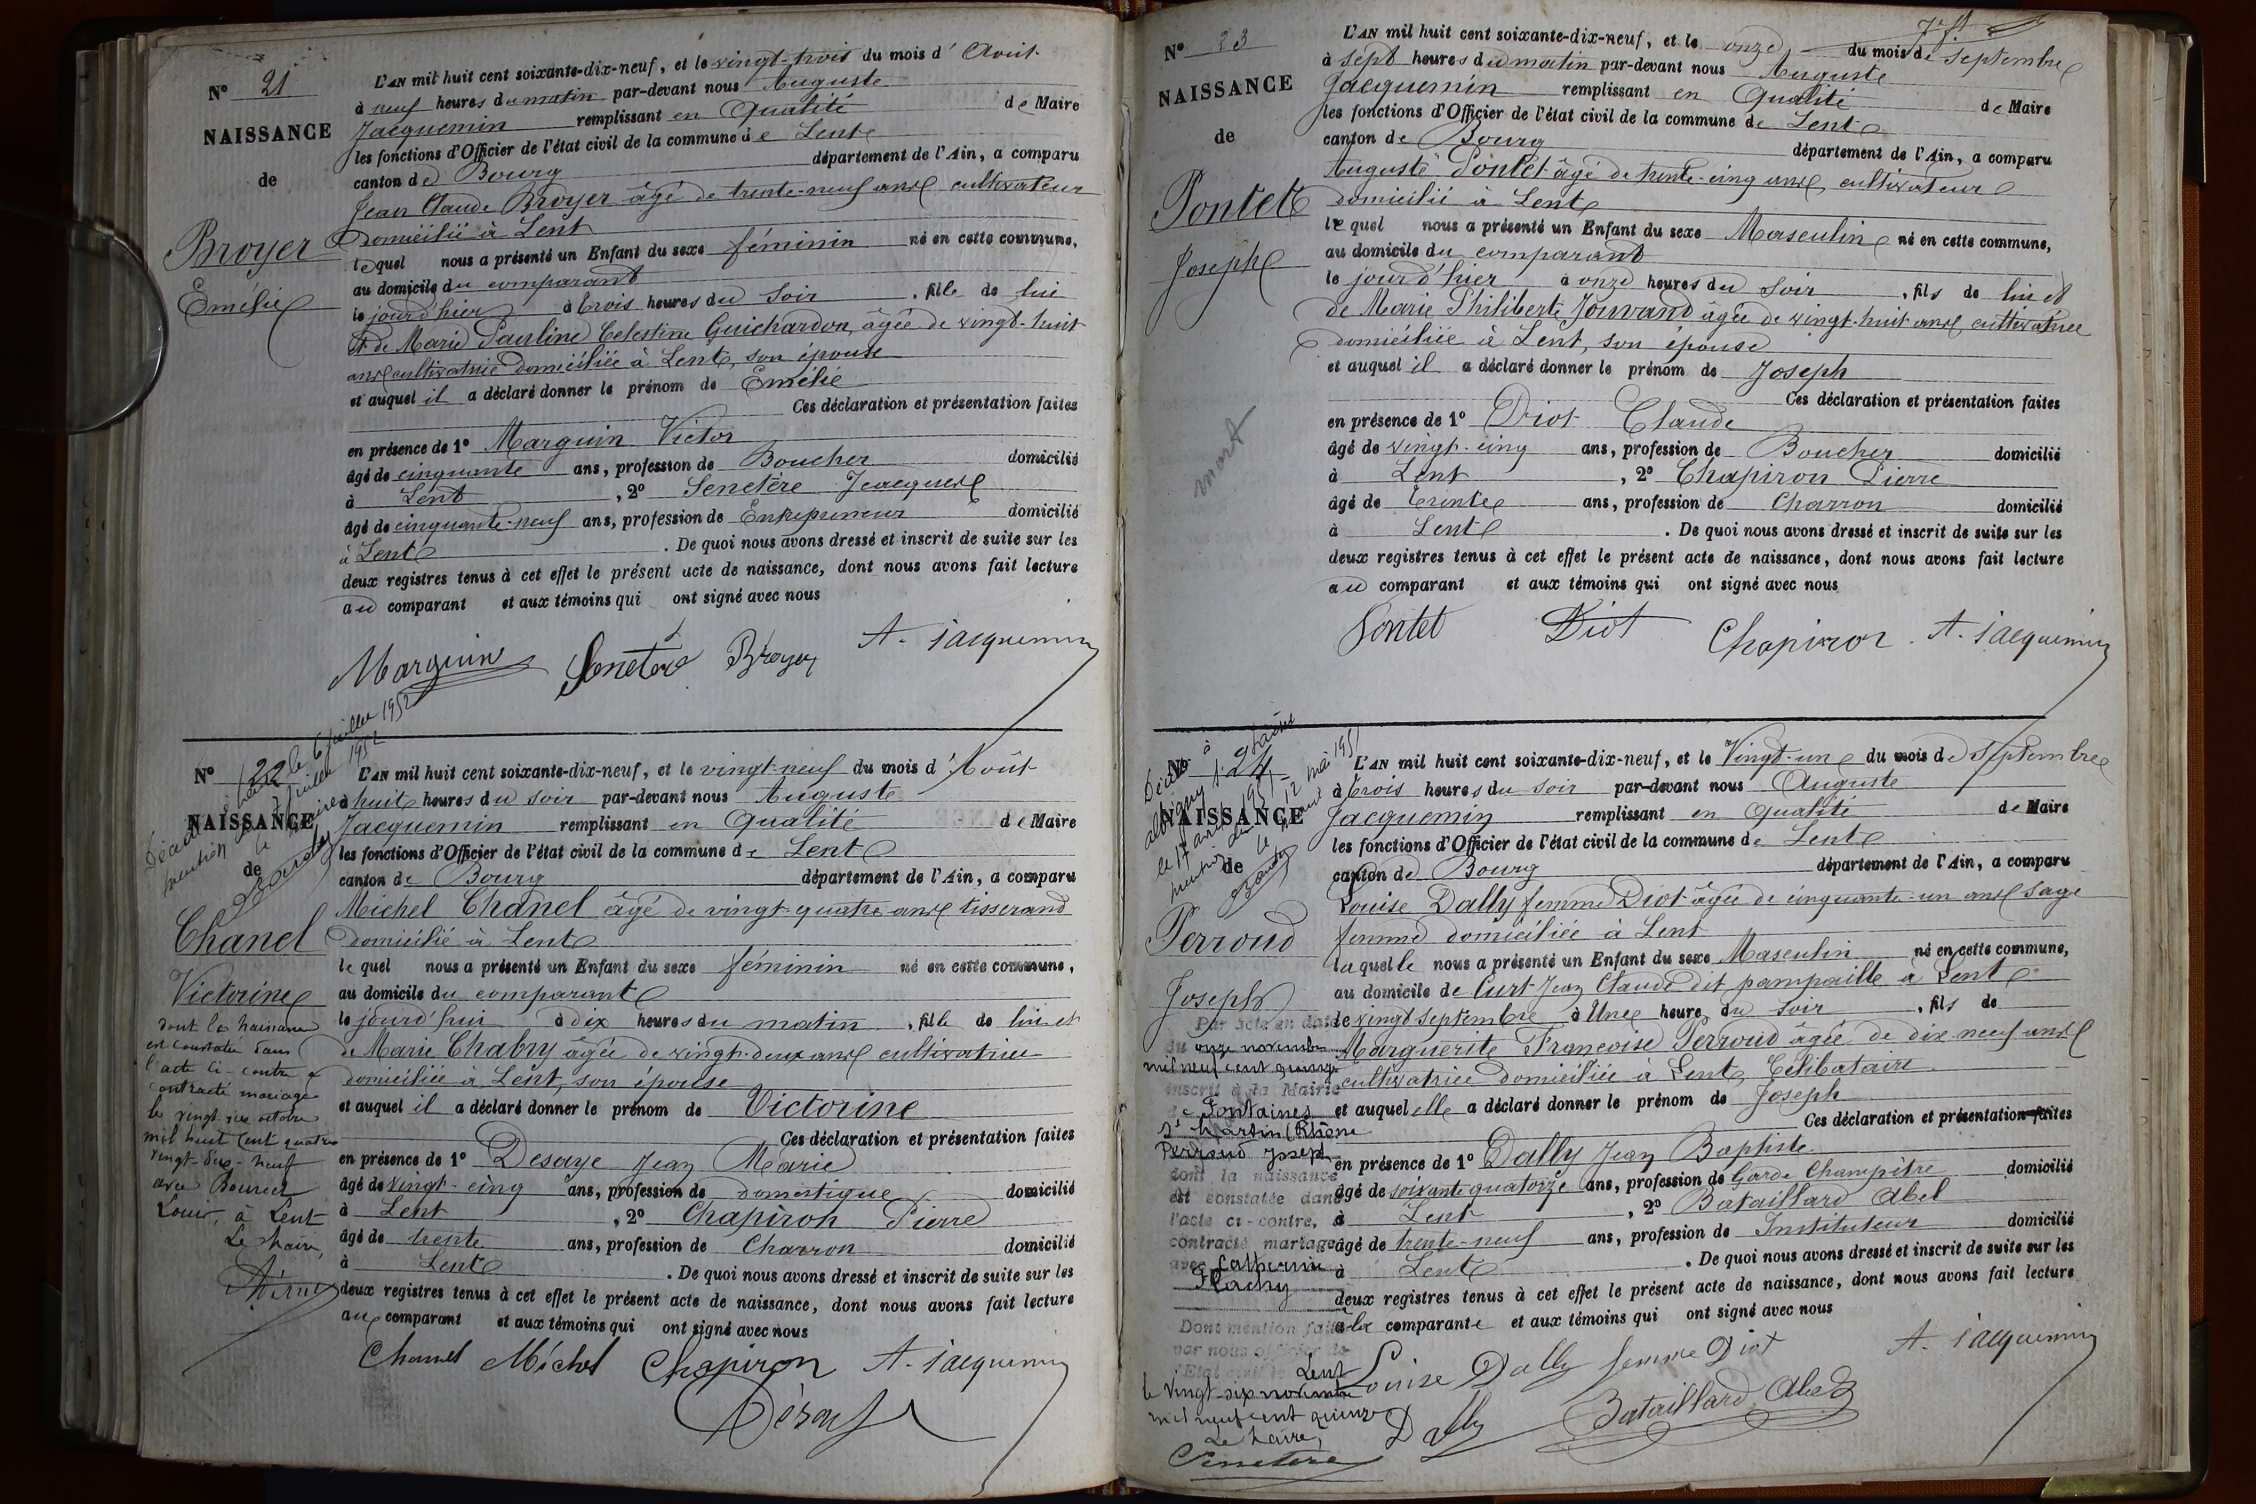 N° 21
NAISSANCE
de
Broyer
Emélie
L'AN mil huit cent soixante-dix-neuf, et le vingt-trois du mois d'Août
à neuf heures du matin par-devant nous Auguste
Jacquemin remplissant en Qualité de Maire
les fonctions d'Officier de l'état civil de la commune de Lent
canton de Bourg département de l'Ain, a comparu
Jean Claude Broyer âgé de trente-neuf ans cultivateur
domicilié à Lent
lequel nous a présenté un Enfant du sexe féminin né en cette commune,
au domicile du comparant
le jourd'hier à trois heures du soir, fille de lui
et de Marie Pauline Celestine Guichardon, âgée de vingt-huit
ans cultivatrice domiciliée à Lent, son épouse
et auquel il a déclaré donner le prénom de Emélie
Ces déclaration et présentation faites
en présence de 1° Marguin Victor
âgé de cinquante ans, profession de Boucher domicilié
à Lent, 2° Senetère Jacques
âgé de cinquante-neuf ans, profession de Entrepreneur domicilié
à Lent. De quoi nous avons dressé et inscrit de suite sur les
deux registres tenus à cet effet le présent acte de naissance, dont nous avons fait lecture
au comparant et aux témoins qui ont signé avec nous
Marguin Senetère Broyer A. Jacquemin
N° 22
NAISSANCE
de
Chanel
Victorine
Décédée le 6 juillet 1952
mention juillet 1952
le Maire
dont la naissance
est constatée dans
l'acte ci-contre a
contracté mariage
le vingt-six octobre
mil huit cent quatre
vingt-dix-neuf
avec
Louis, à Lent
Le Maire,
L'AN mil huit cent soixante-dix-neuf, et le vingt-neuf du mois d'Août
à huit heures du soir par-devant nous Auguste
Jacquemin remplissant en Qualité de Maire
les fonctions d'Officier de l'état civil de la commune de Lent
canton de Bourg département de l'Ain, a comparu
Michel Chanel âgé de vingt-quatre ans tisserand
domicilié à Lent
lequel nous a présenté un Enfant du sexe féminin né en cette commune,
au domicile du comparant
le jourd'hui à dix heures du matin, fille de lui et
de Marie Chabry âgée de vingt-deux ans cultivatrice
domiciliée à Lent, son épouse
et auquel il a déclaré donner le prénom de Victorine
Ces déclaration et présentation faites
en présence de 1° Desaye Jean Marie
âgé de vingt-cinq ans, profession de domestique domicilié
à Lent, 2° Chapiron Pierre
âgé de trente ans, profession de Charron domicilié
à Lent. De quoi nous avons dressé et inscrit de suite sur les
deux registres tenus à cet effet le présent acte de naissance, dont nous avons fait lecture
au comparant et aux témoins qui ont signé avec nous
Chanel Michel Chapiron A. Jacquemin
N° 23
NAISSANCE
de
Pontet
Joseph
mort
L'AN mil huit cent soixante-dix-neuf, et le onze du mois de septembre
à sept heures du matin par-devant nous Auguste
Jacquemin remplissant en Qualité de Maire
les fonctions d'Officier de l'état civil de la commune de Lent
canton de Bourg département de l'Ain, a comparu
Auguste Pontet âgé de trente-cinq ans, cultivateur
domicilié à Lent
lequel nous a présenté un Enfant du sexe Masculin né en cette commune,
au domicile du comparant
le jourd'hier à onze heures du soir, fils de lui et
de Marie Philiberte Jouvand âgée de vingt-huit ans, cultivatrice
domiciliée à Lent, son épouse
et auquel il a déclaré donner le prénom de Joseph
Ces déclaration et présentation faites
en présence de 1° Diot Claude
âgé de vingt-cinq ans, profession de Boucher domicilié
à Lent, 2° Chapiron Pierre
âgé de trente ans, profession de Charron domicilié
à Lent. De quoi nous avons dressé et inscrit de suite sur les
deux registres tenus à cet effet le présent acte de naissance, dont nous avons fait lecture
au comparant et aux témoins qui ont signé avec nous
Pontet Diot Chapiron A. Jacquemin
N° 24
NAISSANCE
de
Perroud
Joseph
Décédé à
albigny s. Saône
le 17 avril 1951
mention du 12 mai 1951
le Maire
Par acte en date
du onze novembre
mil neuf cent quinze
inscrit à la Mairie
de Fontaines
St Martin (Rhône
Perroud Joseph
dont la naissance
est constatée dans
l'acte ci-contre, a
contracté mariage
avec Catherine
Flachy
Dont mention faite
par nous officier de
l'Etat civil de Lent
le vingt-six novembre
mil neuf cent quinze
Le Maire,
Senetère
L'AN mil huit cent soixante-dix-neuf, et le Vingt-un du mois de Septembre
à trois heures du soir par-devant nous Auguste
Jacquemin remplissant en qualité de Maire
les fonctions d'Officier de l'état civil de la commune de Lent
canton de Bourg département de l'Ain, a comparu
Louise Dally femme Diot âgée de cinquante-un ans sage
femme domiciliée à Lent
laquelle nous a présenté un Enfant du sexe Masculin né en cette commune,
au domicile de Curt Jean Claude dit pampaille à Lent
le vingt septembre à Une heure du soir, fils de
Marguerite Françoise Perroud âgée de dix-neuf ans
cultivatrice domiciliée à Lent, Célibataire
et auquel elle a déclaré donner le prénom de Joseph
Ces déclaration et présentation faites
en présence de 1° Dally Jean Baptiste
âgé de soixante quatorze ans, profession de Garde Champêtre domicilié
à Lent, 2° Bataillard Abel
âgé de trente-neuf ans, profession de Instituteur domicilié
à Lent. De quoi nous avons dressé et inscrit de suite sur les
deux registres tenus à cet effet le présent acte de naissance, dont nous avons fait lecture
à la comparante et aux témoins qui ont signé avec nous
Louise Dally femme Diot A. Jacquemin
Dally Bataillard Abel